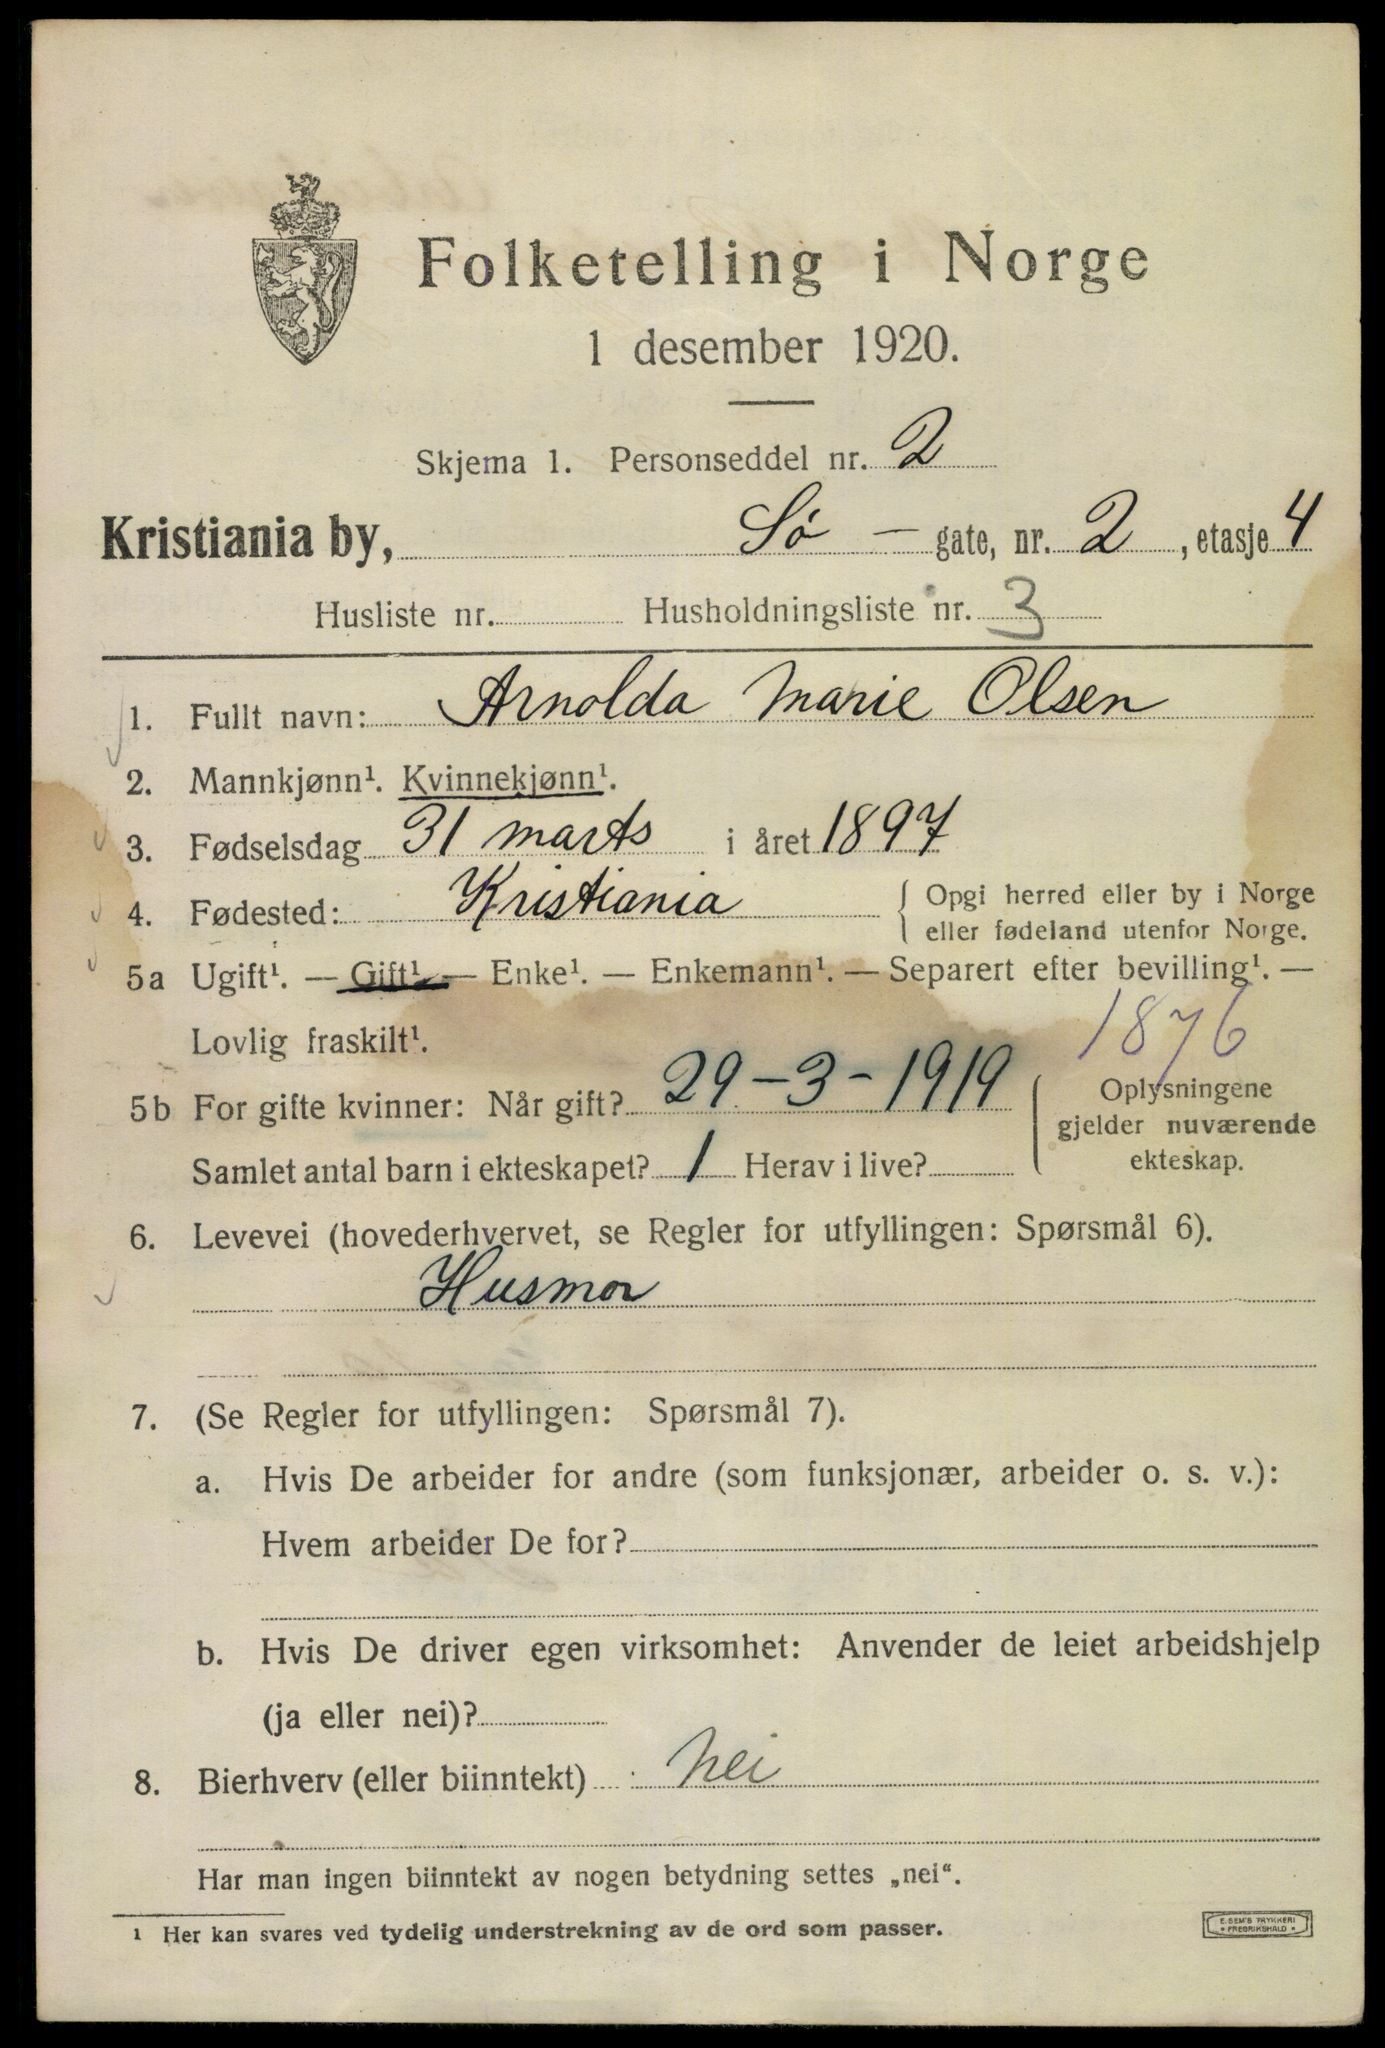 Folketelling i Norge
1 desember 1920.
Skjema 1. Personseddel nr. 2
Kristiania by, Sø - gate, nr. 2, etasje 4
Husliste nr. Husholdningsliste nr. 3
1. Fullt navn: Arnolda Marie Olsen
2. Mannkjønn¹. Kvinnekjønn¹.
3. Fødselsdag 31 marts i året 1897
4. Fødested: Kristiania { Opgi herred eller by i Norge
eller fødeland utenfor Norge.
5a Ugift¹. — Gift¹. — Enke¹. — Enkemann¹. — Separert efter bevilling¹. —
Lovlig fraskilt¹.
1876
5b For gifte kvinner: Når gift? 29-3-1919
Samlet antal barn i ekteskapet? 1 Herav i live?
Oplysningene
gjelder nuværende
ekteskap.
6. Levevei (hovederhvervet, se Regler for utfyllingen: Spørsmål 6).
Husmor
7. (Se Regler for utfyllingen: Spørsmål 7).
a. Hvis De arbeider for andre (som funksjonær, arbeider o. s. v.):
Hvem arbeider De for?
b. Hvis De driver egen virksomhet: Anvender de leiet arbeidshjelp
(ja eller nei)?
8. Bierhverv (eller biinntekt) Nei
Har man ingen biinntekt av nogen betydning settes „nei“.
1 Her kan svares ved tydelig understrekning av de ord som passer.
E. SEM'S TRYKKERI
* FREDRIKSHALD *